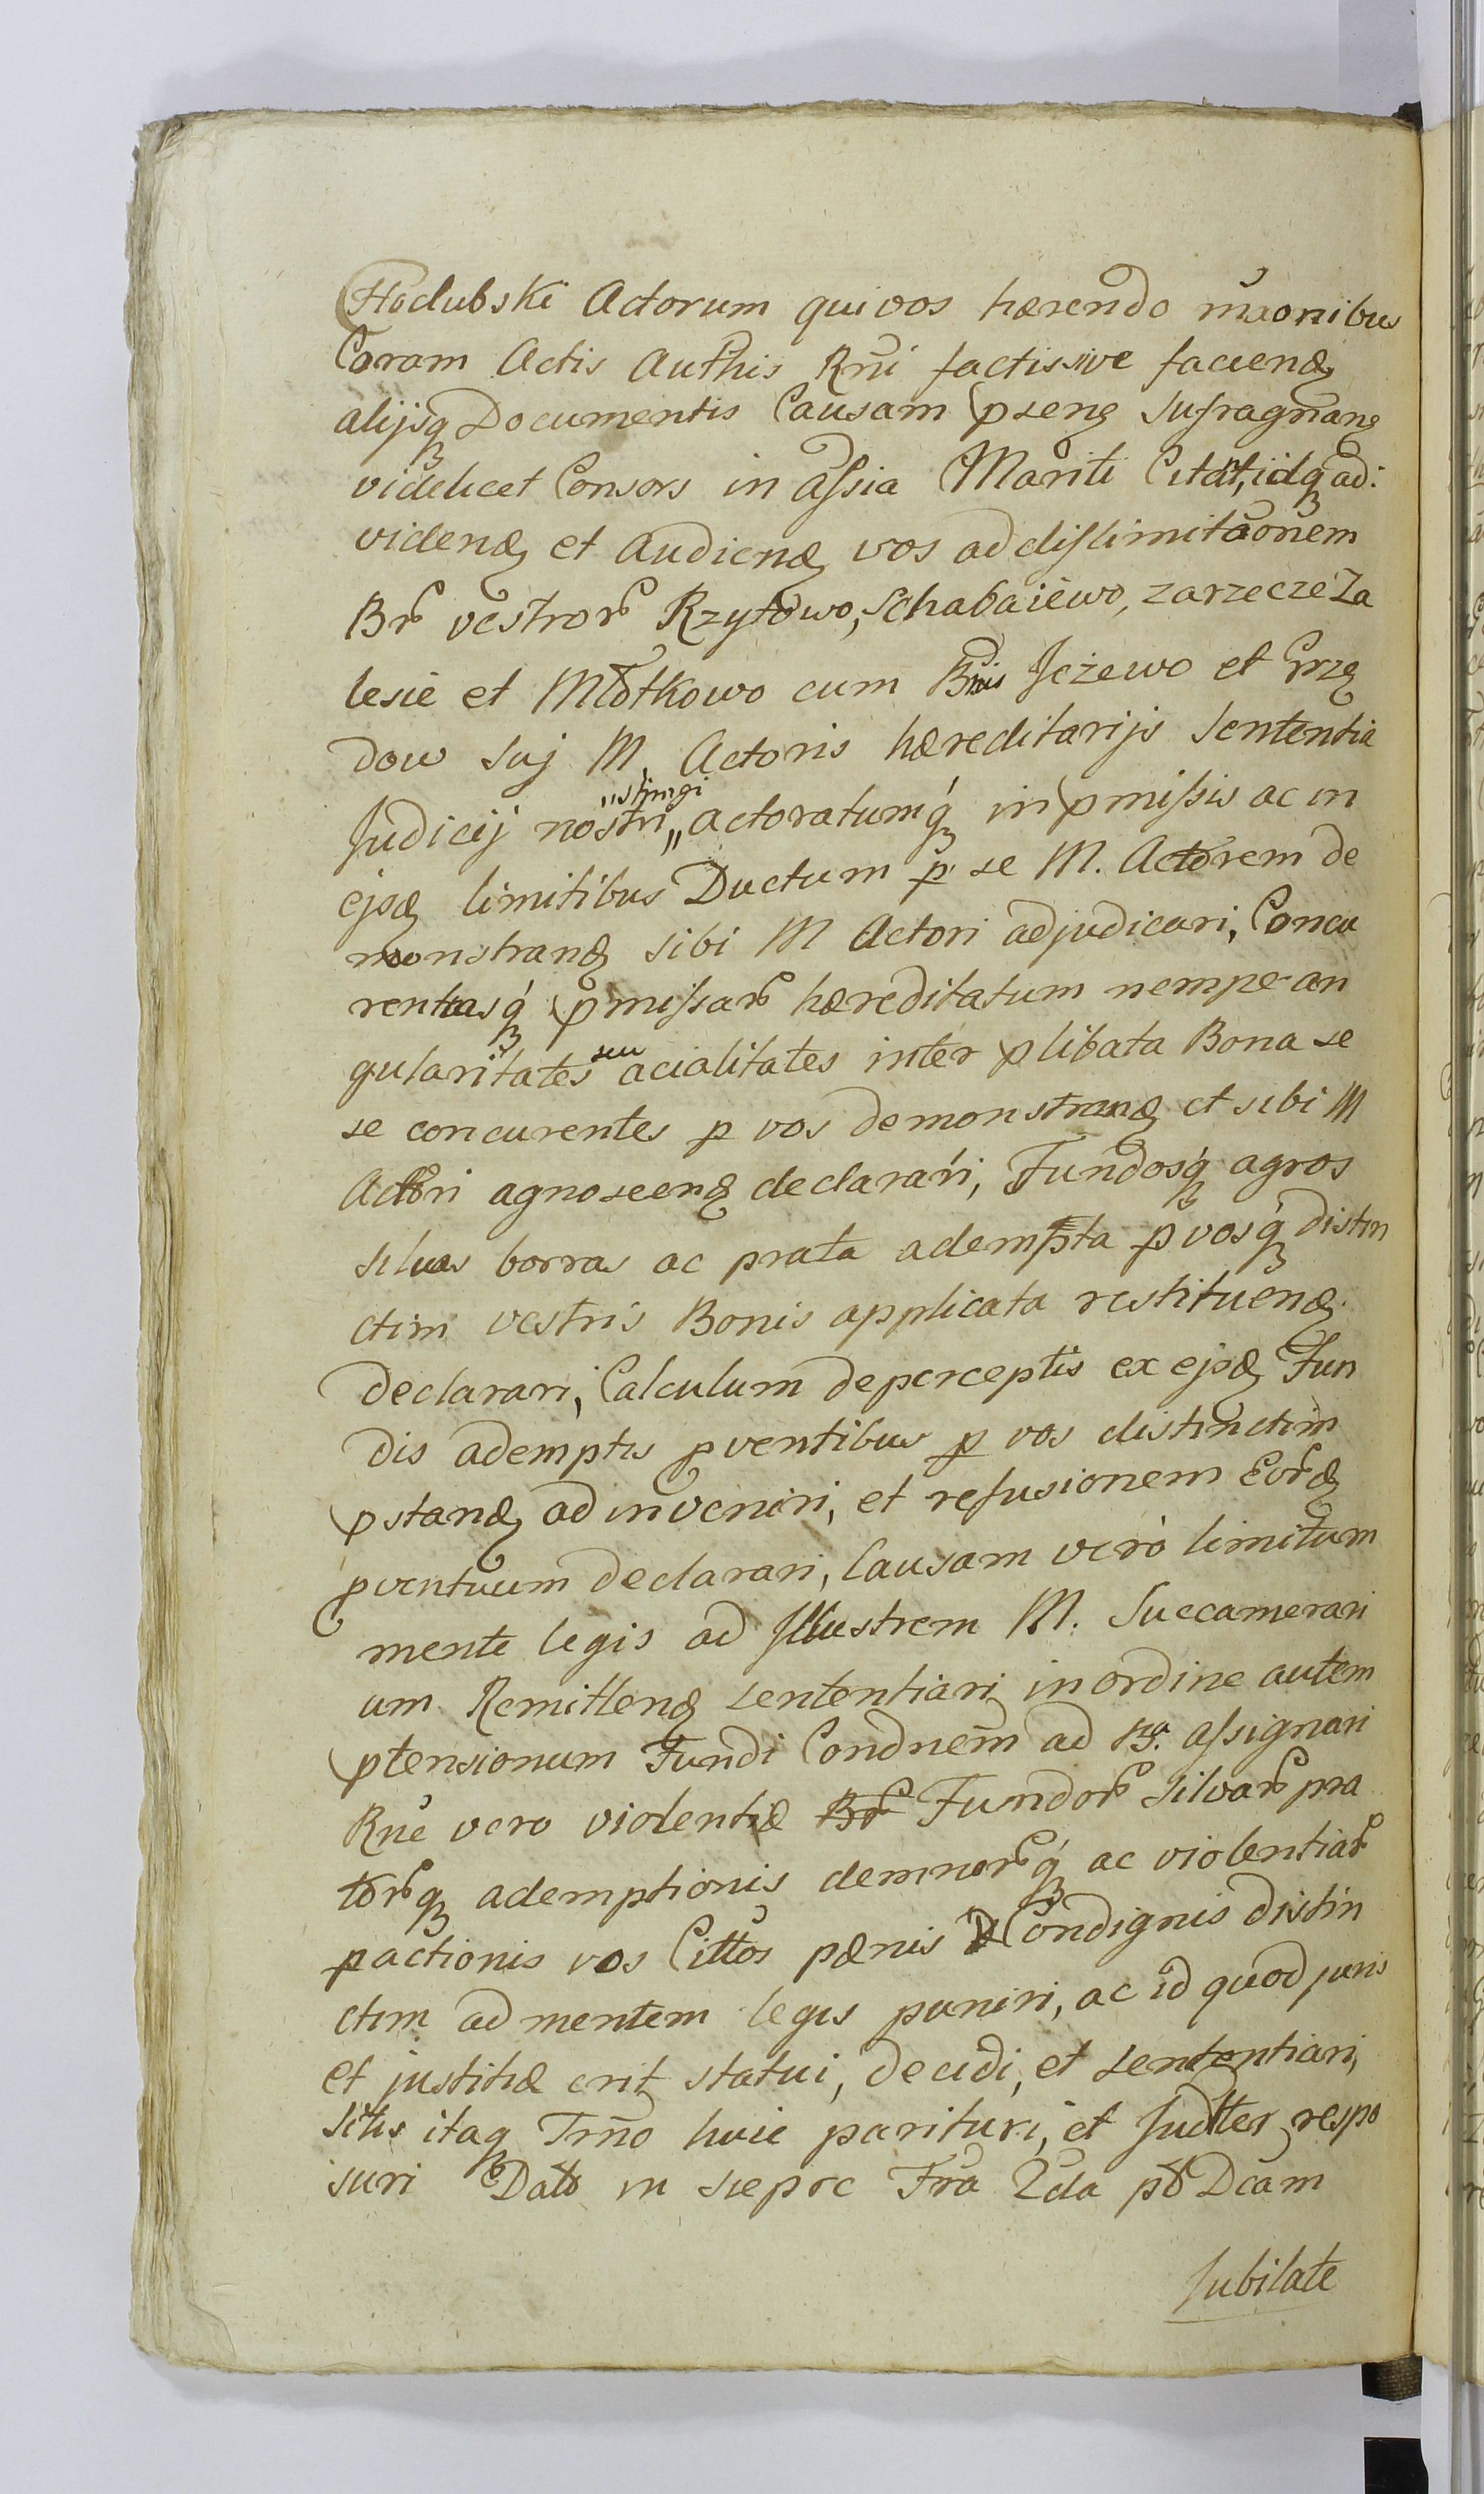 Hodubski Actorum qui vos hærendo mãonibus
Coram Actis Authis Rñi factis sive faciend
alijsq Documentis Causam psene sufragñane
videlicet Consors in assia Mariti Citat, idq ad:
videnđ et audienđ vos ad dislimitãonem
Br vestror Rzytowo, Schabaiewo, zarzecze Za
lesie et Młotkowo cum Bnis Jeżewo et Grzę
dow suj M. Actoris hæreditarijs Sententia
Judicij nostri "stringi" actoratumq́ in pmissis ac in
ejsđ limitibus Ductum p se M. Actorem de
monstranđ sibi M Actori adjudicari, Concu
rentiasq́ pmissar hæreditatum nempe an
gularitates seu acialitates inter plibata Bona se
se concurentes p vos demonstranđ et sibi M
Actori agnoscenđ declarari, Fundosq́ agros
silvas borras ac prata adempta p vosq́ distin
ctim vestris Bonis applicata restituenđ
declarari, Calculum de perceptis ex ejsđ Fun
dis ademptis pventibus p vos distinctim
pstanđ adinveniri, et refusionem Eorđ
pventuum declarari, Causam vero limitum
mente legis ad Illustrem M. Succamerari
um Remittenđ sententiari, in ordine autem
ptensionum Fundi Condnem̃ ad assignari
Rñe vero violentiæ Br Fundor silvar pra
torq ademptionis demnorq́ ac violentiar
pactionis vos Cittos pænis Condignis distin
ctim ad mentem legis puniri, ac id quod juris
et justitiæ erit statui, decidi, et sententiari,
sitis itaq Trm̃o huic parituri, et Judtter respo
suri Dato in sieprc Fra 2da p Dcam
Jubilate